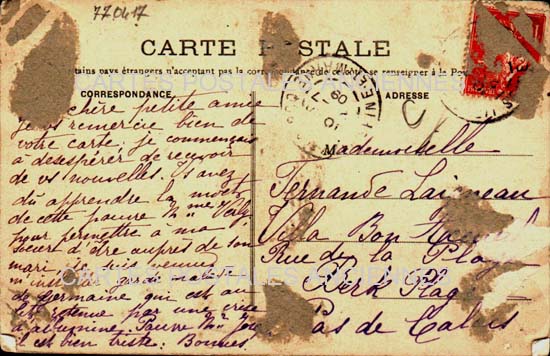 770417
CARTE POSTALE
tains pays étrangers n'acceptant pas la correspondance de ce côté, se renseigner à la Poste
CORRESPONDANCE
ADRESSE
chère petite amie
Je vous remercie bien de
votre carte, je commençais
à désespérer de recevoir
de vos nouvelles. Vs avez
dû apprendre la mort
de cette pauvre Mme
pour permettre à ma
soeur d'être auprès de son
mari, je suis venue
m'installer garde malade
de Germaine qui est au
lit retenue par une crise
Pauvre Mme
il est bien triste. Bonnes
Mademoiselle
Fernande
Villa Bon
Rue de la Plage
Berk Plage
Pas de Calais
CARTES POSTALES ANCIENNES